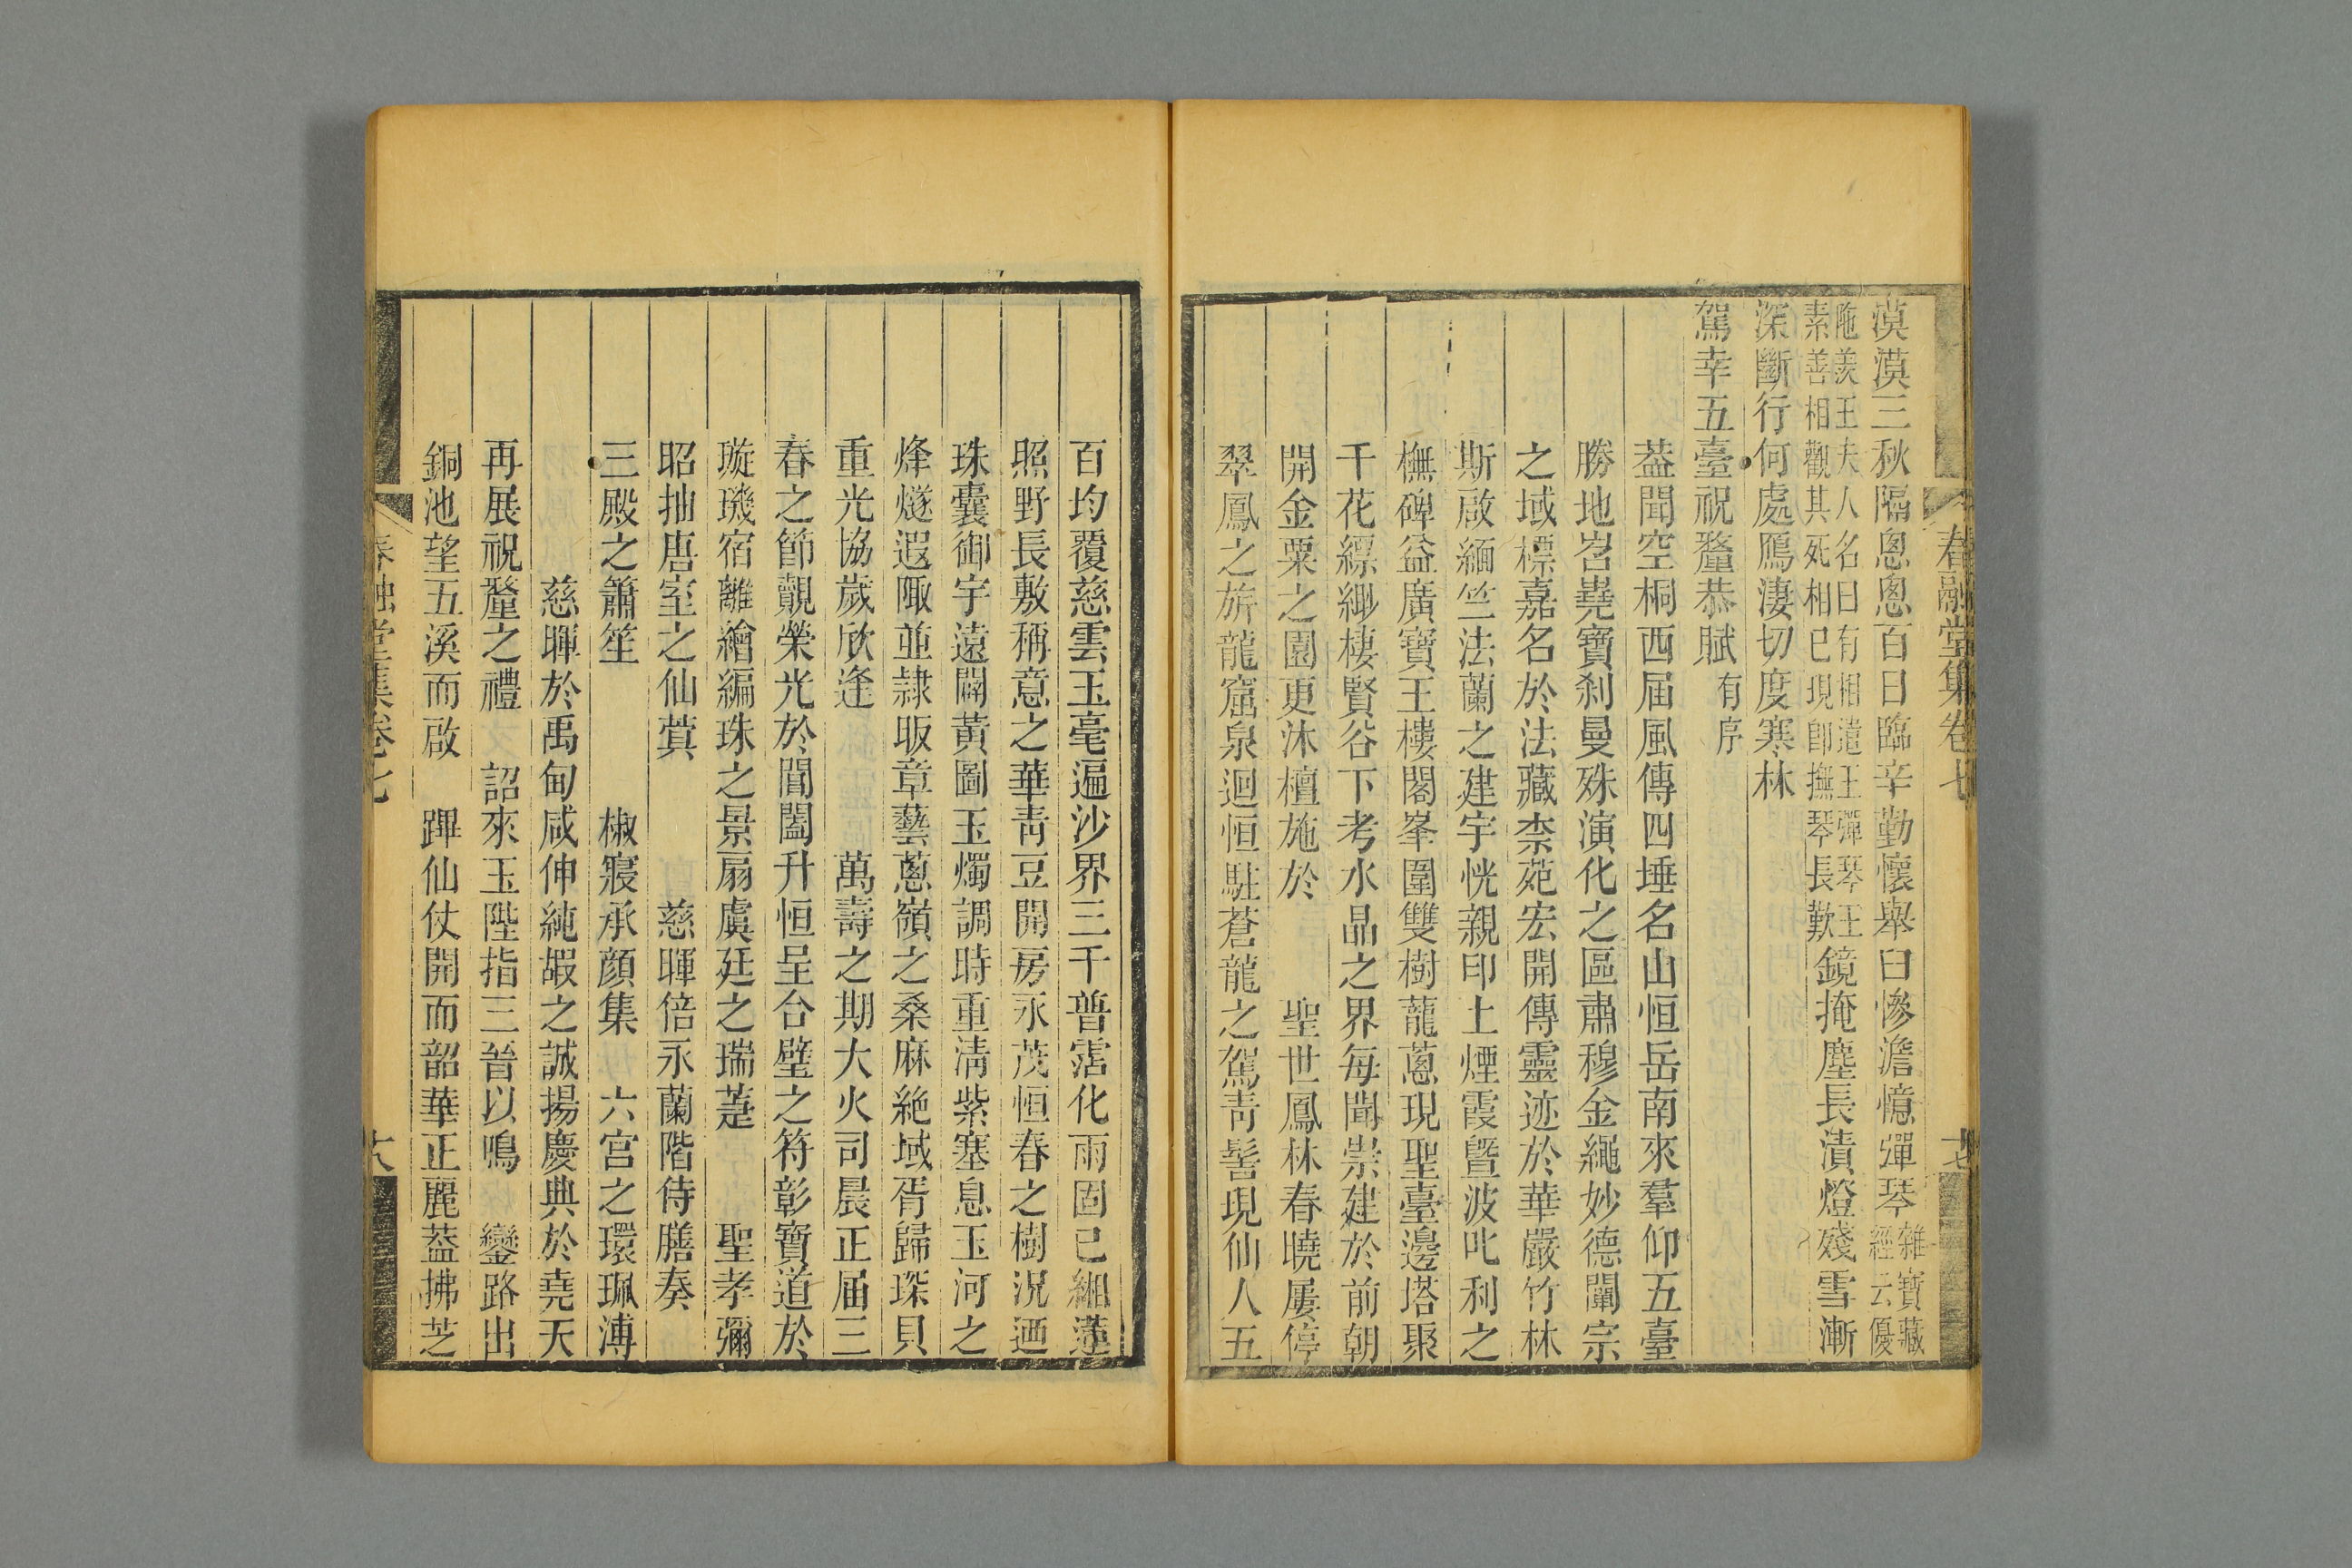 春融堂集卷七
十七
漠漠三秋隔悤悤百日臨辛勤懷舉臼慘澹憶彈琴雜寶藏經云優
陁羨王夫人名曰有相遣王彈琴王素善相觀其死相已現卽撫琴長歎鏡掩塵長漬燈殘雪漸
深斷行何處鴈淒切度寒林
駕幸五臺祝釐恭賦有序
葢聞空桐西屆風傳四埵名山恒岳南來羣仰五臺
勝地岧嶤寶刹曼殊演化之區肅穆金繩妙德闡宗
之域標嘉名於法藏柰苑宏開傳靈迹於華嚴竹林
斯啟緬竺法蘭之建宇恍親印土煙霞暨波叱利之
橅碑益廣寶王樓閣峯圍雙樹蘢蔥現聖臺邊塔聚
千花縹緲棲賢谷下考水晶之界每聞崇建於前朝
開金粟之園更沐檀施於 聖世鳳林春曉屢停
翠鳳之旂龍窟泉迴恒駐蒼龍之駕靑髻現仙人五
百均覆慈雲玉毫遍沙界三千普霑化雨固已緗蓮
照野長敷稱意之華靑豆開房永茂恒春之樹況迺
珠囊御宇遠闢黃圖玉燭調時重淸紫塞息玉河之
烽燧遐陬並隷昄章藝蔥嶺之桑麻絶域胥歸琛貝
重光協歲欣逢 萬壽之期大火司晨正届三
春之節覿榮光於閶闔升恒呈合璧之符彰寶道於
璇璣宿離繪編珠之景扇虞廷之瑞萐 聖孝彌
昭抽唐室之仙蓂 慈暉倍永蘭階侍膳奏
三殿之簫笙 椒寢承顏集 六宮之環珮溥
慈暉於禹甸咸伸純嘏之誠揚慶典於堯天
再展祝釐之禮 詔來玉陛指三晉以鳴 鑾路出
銅池望五溪而啟 蹕仙仗開而韶華正麗葢拂芝
春融堂集卷七
十八